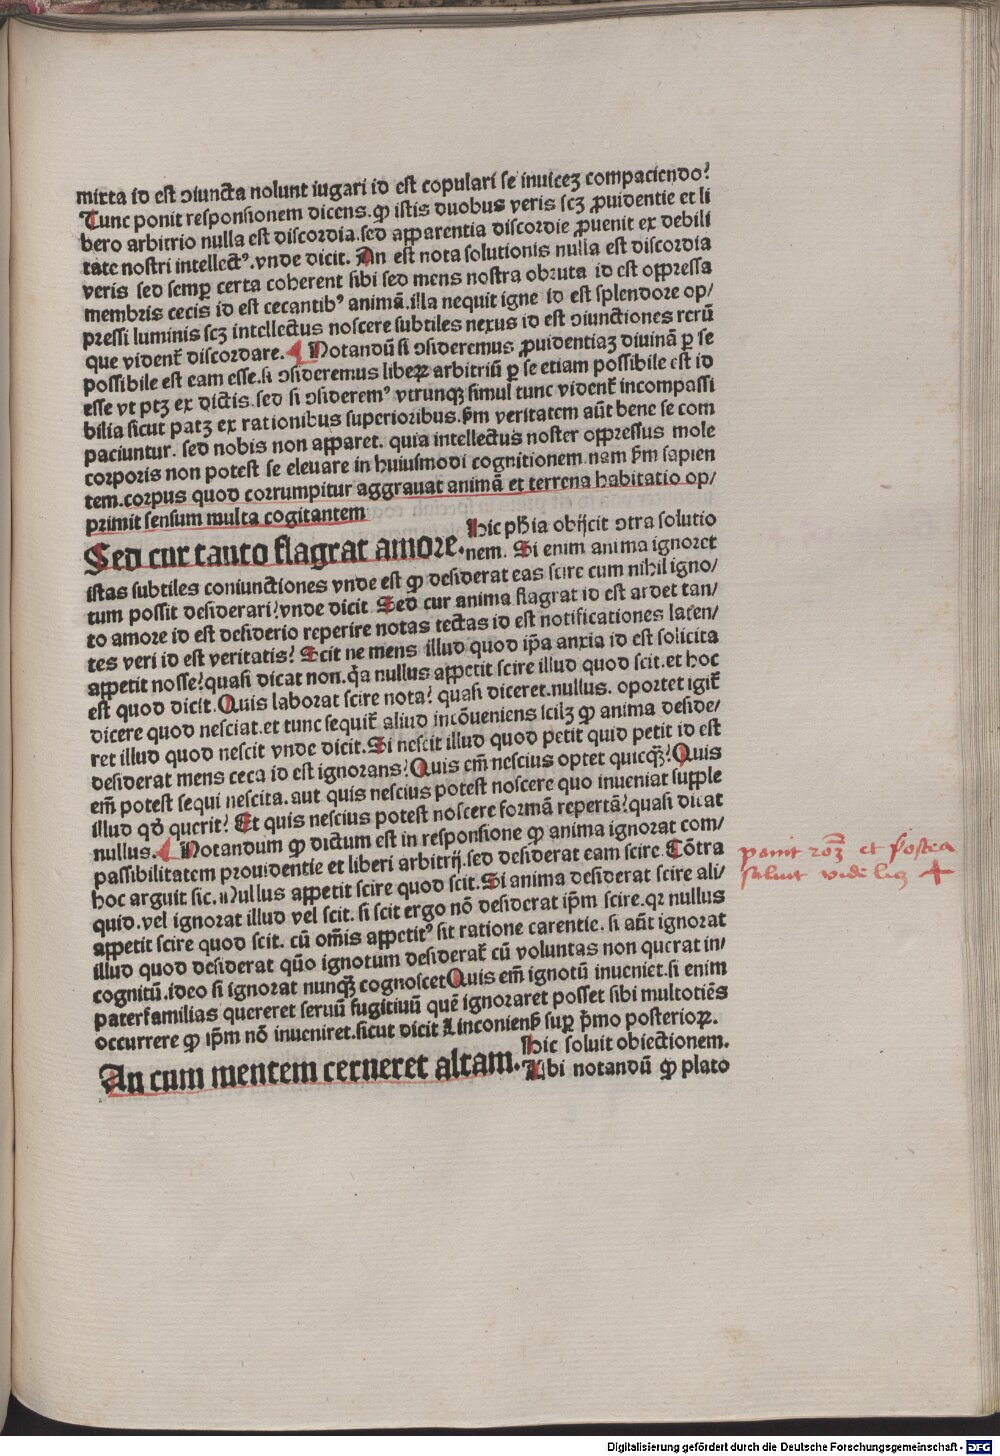 mixta id est ↄiuncta nolunt iugari id est copulari se inuiceꝫ compaciendo?
Tunc ponit responsionem dicens. ꝙ istis duobus veris scꝫ ꝓuidentie et li
bero arbitrio nulla est discordia. sed apparentia discordie ꝓuenit ex debili
tate nostri intellectꝰ. vnde dicit. An est nota solutionis nulla est discordia
veris sed semꝑ certa coherent sibi sed mens nostra obruta id est oppressa
membris cecis id est cecantibꝰ animā. illa nequit igne id est splendore op/
pressi luminis scꝫ intellectus noscere subtiles nexus id est ↄiunctiones rerū
que vident̄ discordare. ¶ Notandū si ↄsideremus ꝓuidentiaꝫ diuinā ꝑ se
possibile est eam esse. si ↄsideremus libeꝝ arbitriū ꝑ se etiam possibile est id
esse vt ptꝫ ex dictis. sed si ↄsideremꝰ vtrunqꝫ simul tunc vident̄ incompassi
bilia sicut patꝫ ex rationibus superioribus. ẜm veritatem aūt bene se com
paciuntur. sed nobis non apparet. quia intellectus noster oppressus mole
corporis non potest se eleuare in huiusmodi cognitionem. nam ẜm sapien
tem. corpus quod corrumpitur aggrauat animā et terrena habitatio op/
primit sensum multa cogitantem
Sed cur tanto flagrat amore.
Hic ph̄ia obijcit ↄtra solutio
nem. Si enim anima ignoret
istas subtiles coniunctiones vnde est ꝙ desiderat eas scire cum nihil igno/
tum possit desiderari? vnde dicit Sed cur anima flagrat id est ardet tan/
to amore id est desiderio reperire notas tectas id est notificationes laten/
tes veri id est veritatis? Scit ne mens illud quod ip̄a anxia id est solicita
appetit nosse? quasi dicat non. q̄a nullus appetit scire illud quod scit. et hoc
est quod dicit. Quis laborat scire nota? quasi diceret. nullus. oportet igit̄
dicere quod nesciat. et tunc sequit̄ aliud incōueniens scilꝫ ꝙ anima deside/
ret illud quod nescit vnde dicit. Si nescit illud quod petit quid petit id est
desiderat mens ceca id est ignorans? Quis em̄ nescius optet quicqꝫ? Quis
em̄ potest sequi nescita. aut quis nescius potest noscere quo inueniat supple
illud qđ querit? Et quis nescius potest noscere formā repertā? quasi dicat
nullus. ¶ Notandum ꝙ dictum est in responsione ꝙ anima ignorat com/
passibilitatem prouidentie et liberi arbitrij. sed desiderat eam scire. Cōtra
hoc arguit sic. Nullus appetit scire quod scit. Si anima desiderat scire ali/
quid. vel ignorat illud vel scit. si scit ergo nō desiderat ip̄m scire. qꝛ nullus
appetit scire quod scit. cū om̄is appetitꝰ sit ratione carentie. si aūt ignorat
illud quod desiderat quō ignotum desiderat̄ cū voluntas non querat in/
cognitū. ideo si ignorat nunqꝫ cognoscet Quis em̄ ignotū inueniet. si enim
paterfamilias quereret seruū fugitiuū quē ignoraret posset sibi multotiēs
occurrere ꝙ ip̄m nō inueniret. sicut dicit Linconienẜ suꝑ p̄mo posterioꝝ.
An cum mentem cerneret altam.
Hic soluit obiectionem.
Ubi notandū ꝙ plato
ponit et postea
soluit vide
Digitalisierung gefördert durch die Deutsche Forschungsgemeinschaft - DFG